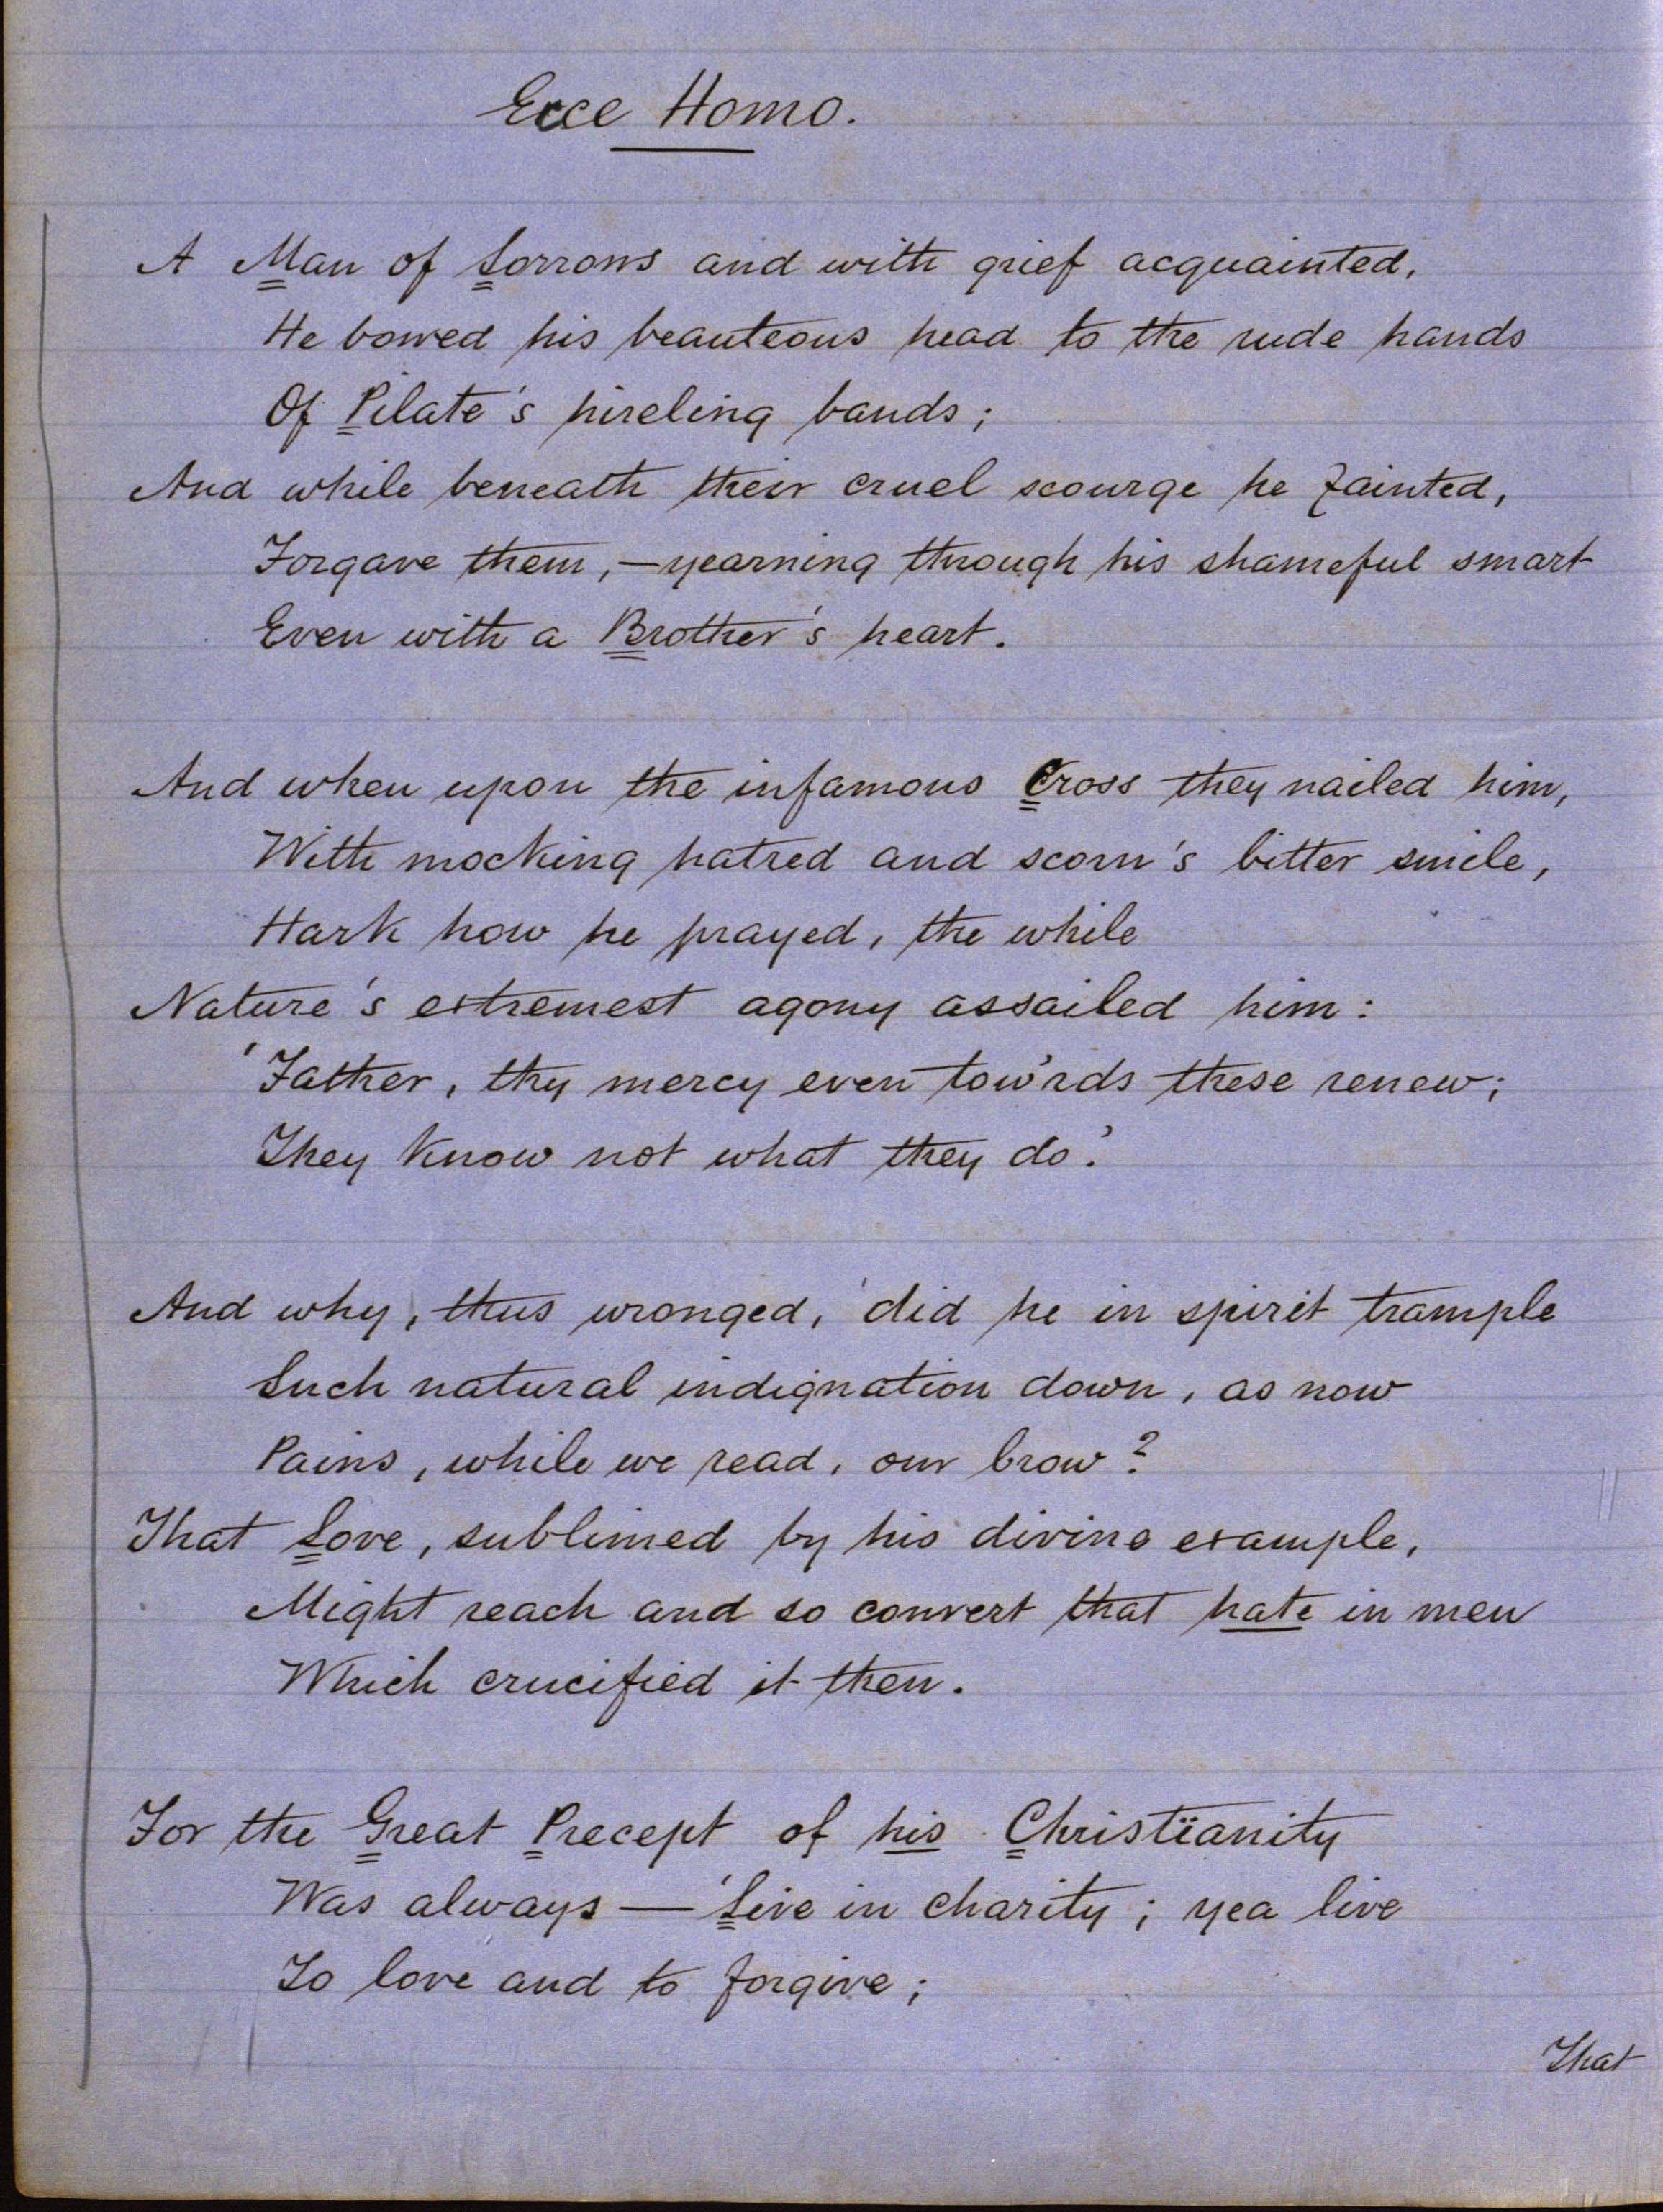 Ecce Homo.
A Man of Sorrows and with grief acquainted,
He bowed his beauteous head to the rude hands
Of Pilate's hireling bands;
And while beneath their cruel scourge he fainted,
Forgave them,—yearning through his shameful smart
Even with a Brother's heart.
And when upon the infamous Cross they nailed him,
With mocking hatred and scorn's bitter smile,
Hark how he prayed, the while
Nature's extremest agony assailed him:
'Father, thy mercy even tow'rds these renew;
They know not what they do.'
And why, thus wronged, did he in spirit trample
Such natural indignation down, as now
Pains, while we read, our brow?
That Love, sublimed by his divine example,
Might reach and so convert that hate in men
Which crucified it then.
For the Great Precept of his Christïanity
Was always — 'Live in charity; yea live
To love and to forgive;
That